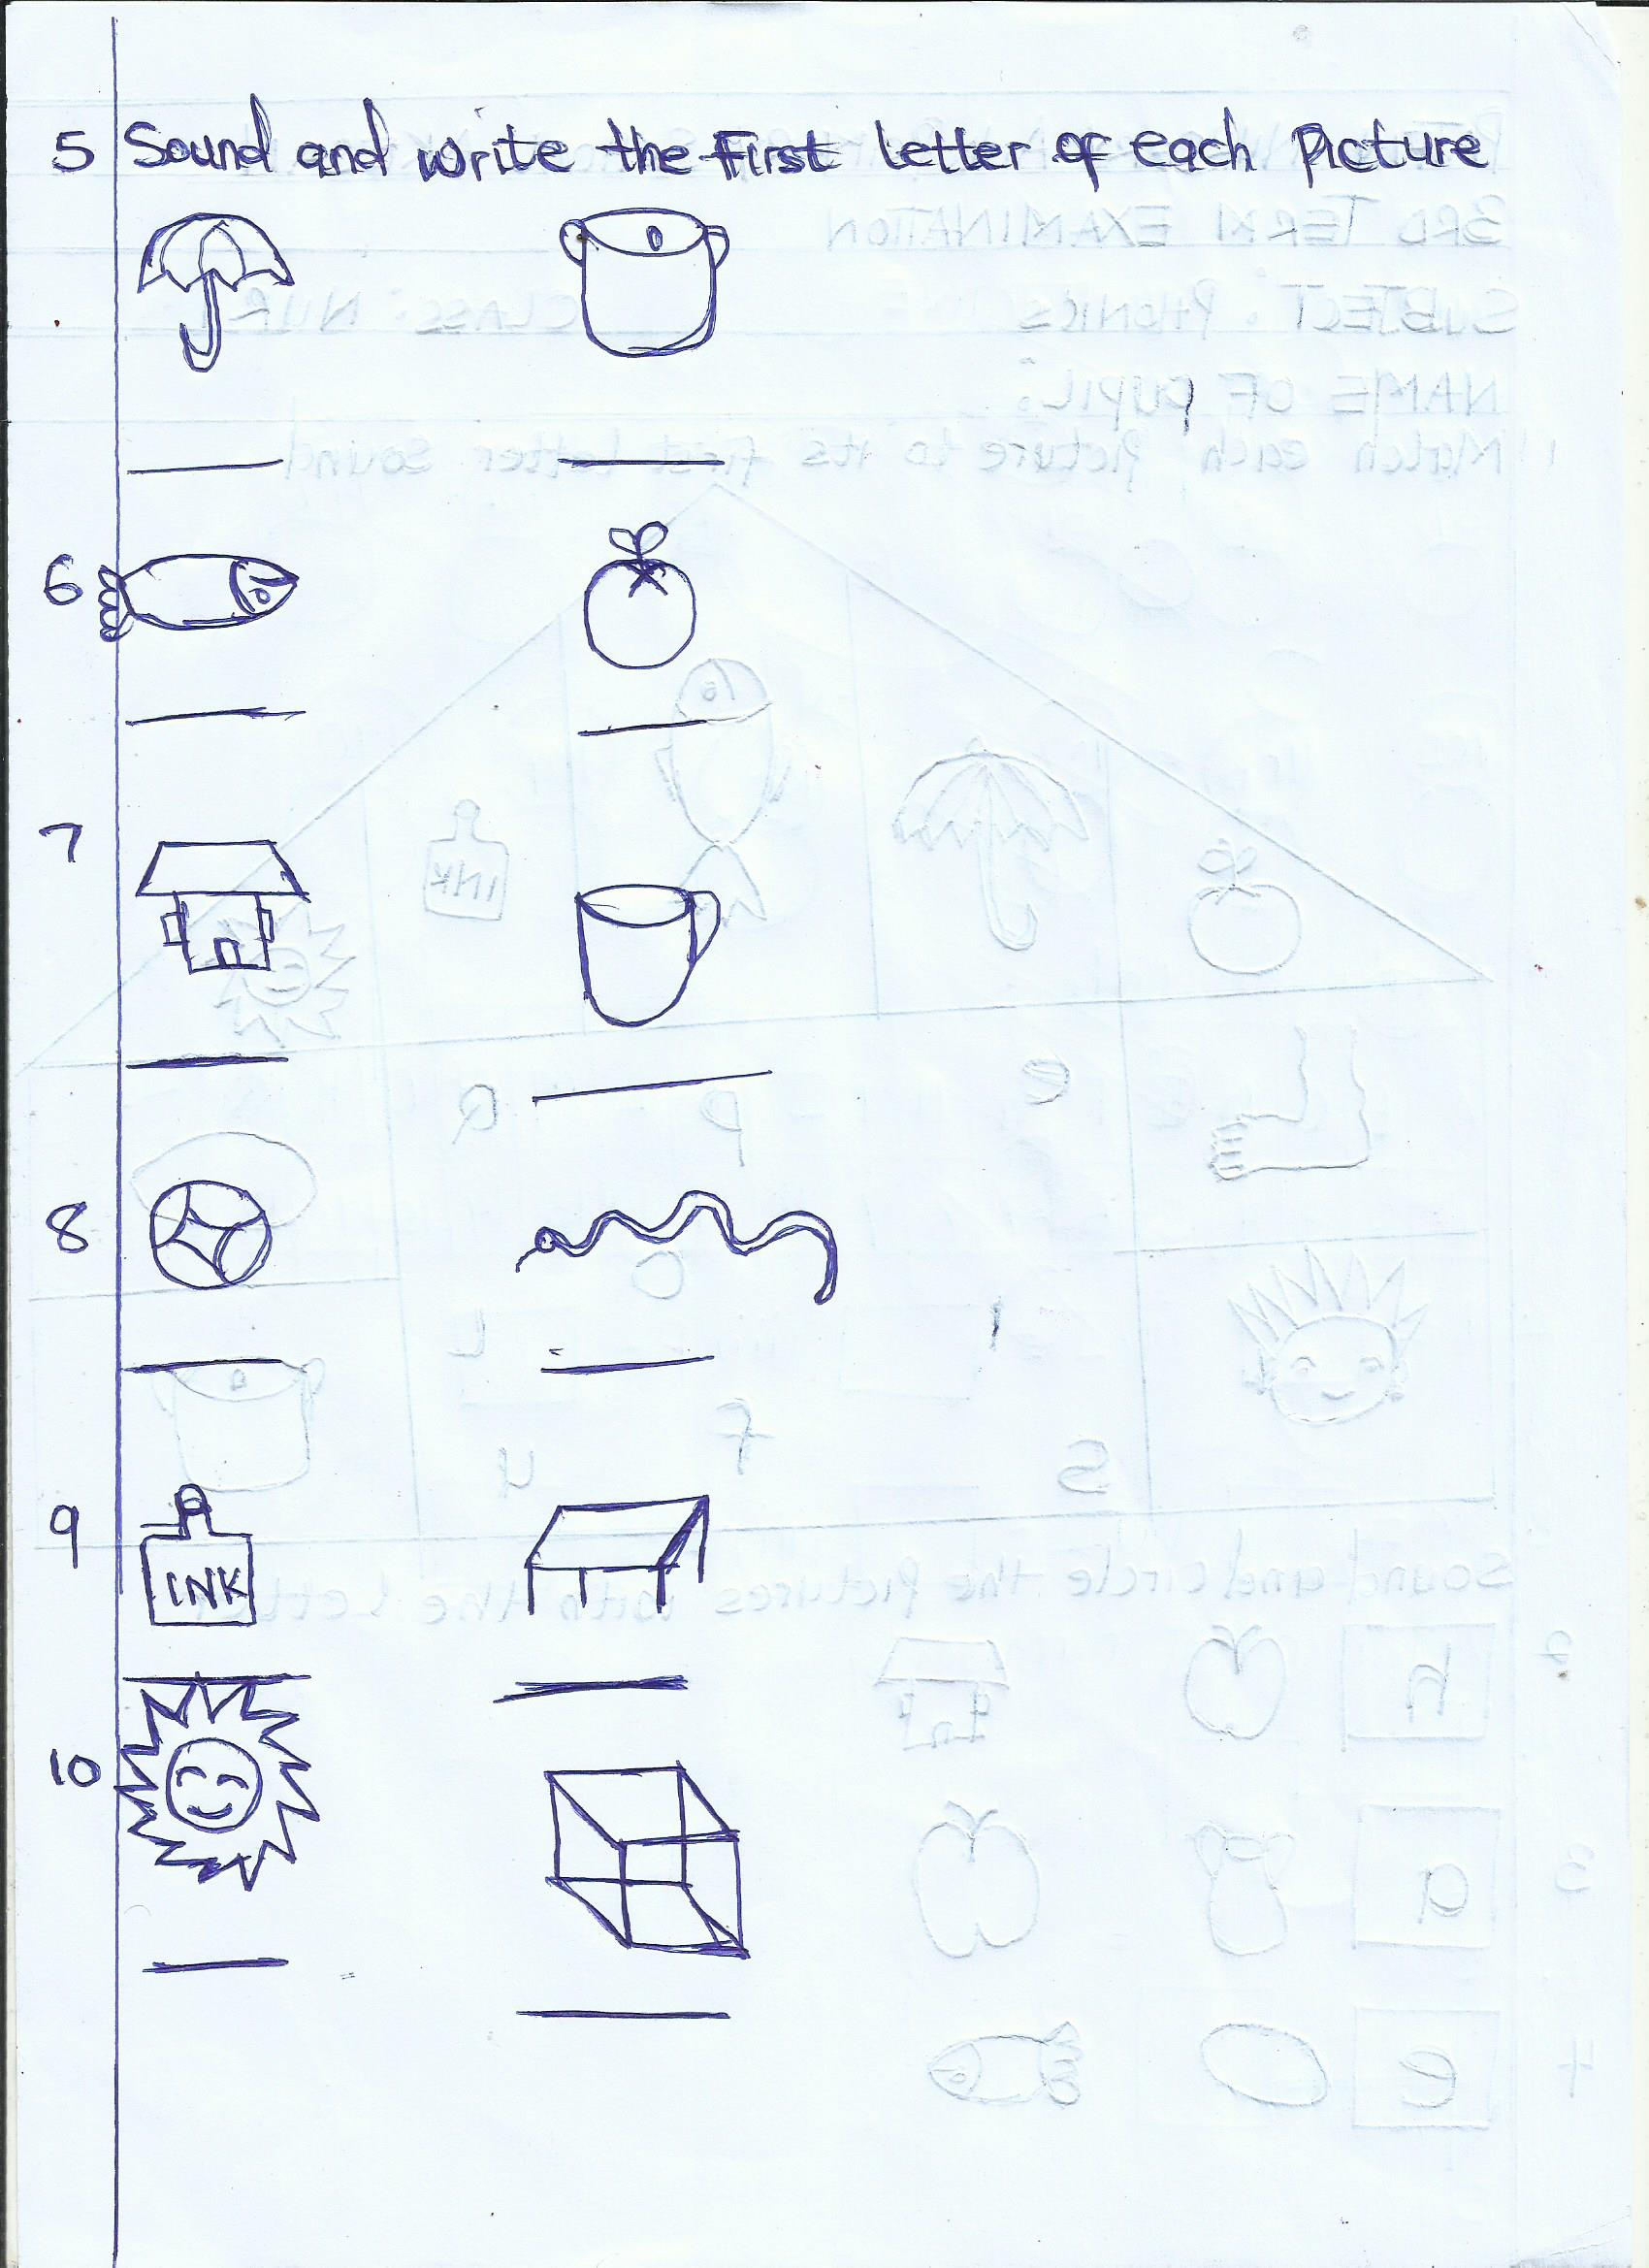 5 Sound and write the first letter of each Picture
6
7
8
9
INK
10